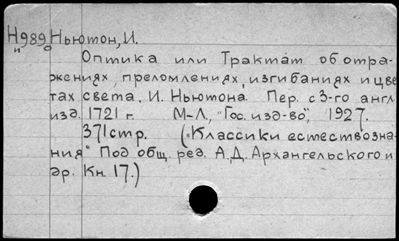 Н989 Ньютон, И.
и о
Оптика или Трактат об отра-
жениях, преломлениях, изгибаниях и цве
тах света. И. Ньютона Пер. с 3-го англ
изд. 1721 г. М-Л., "Гос. изд-во", 1927.
371 стр. ("Классики естествозна-
ния" Под общ. ред. А.Д. Архангельского и
др. Кн. 17.)